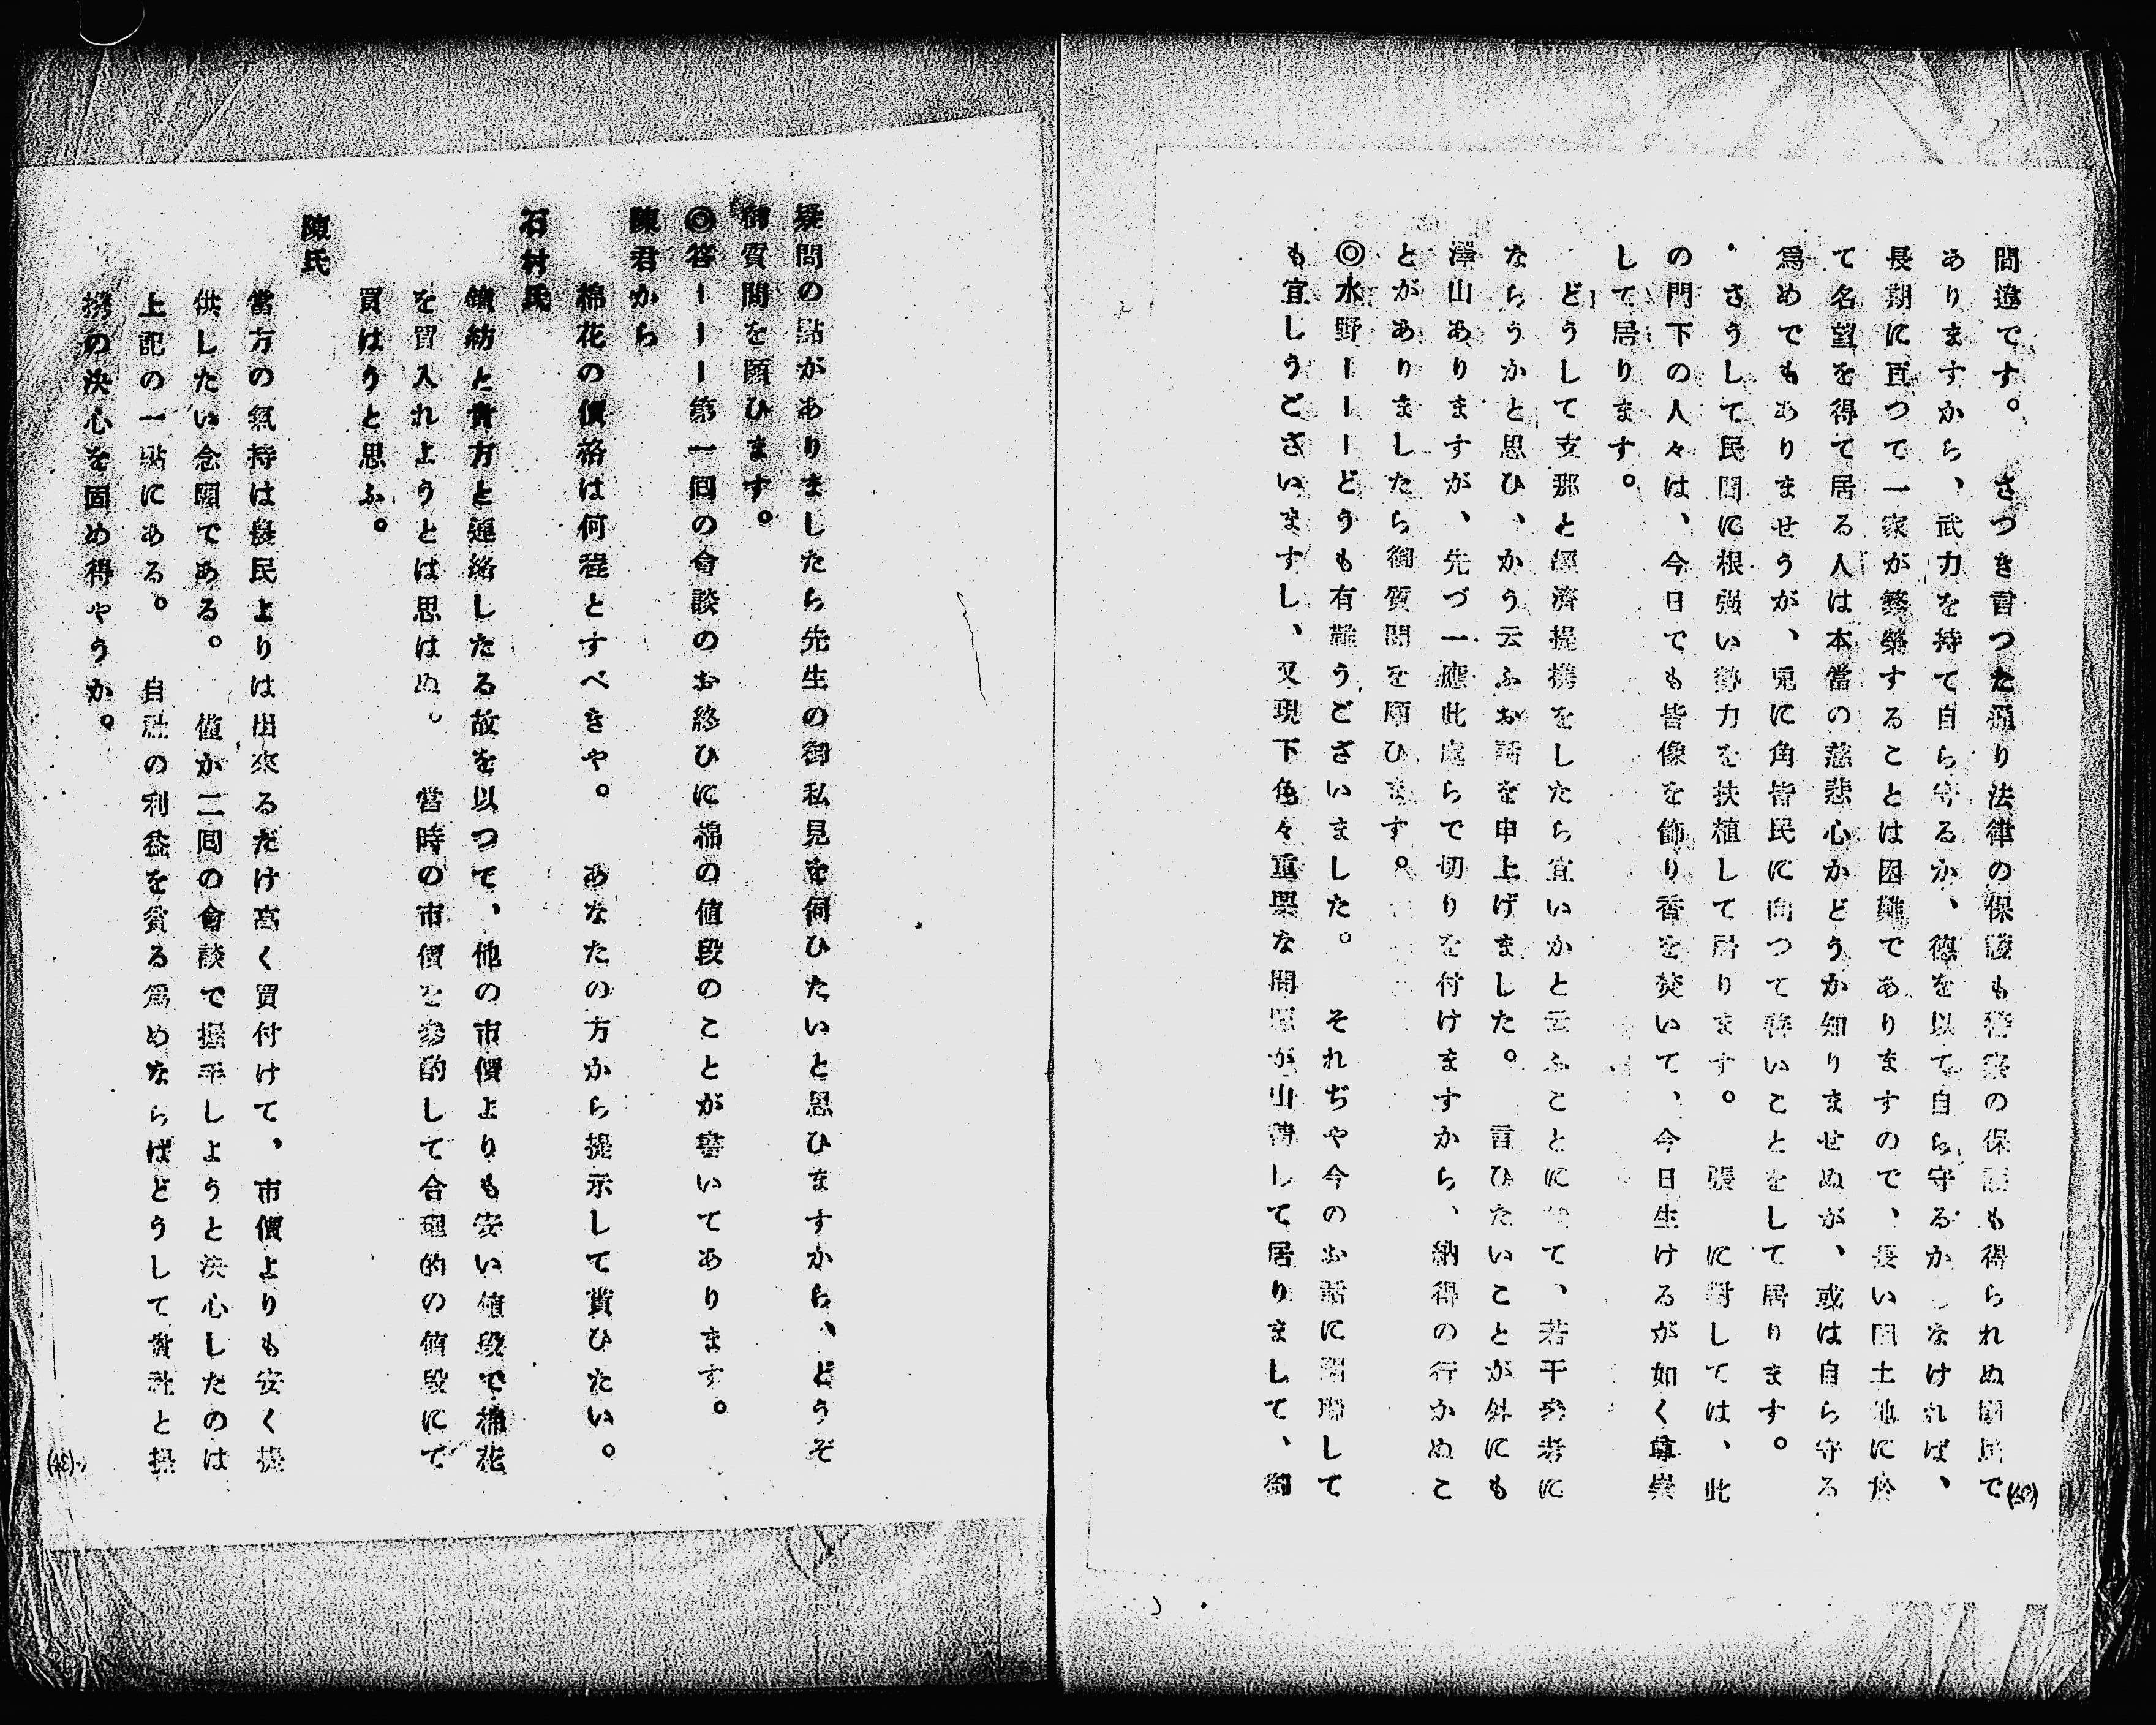 間違です。　さつき言つた通り法律の保護も警察の保護も得られぬ国民で
ありますから、武力を持て自ら守るか、德を以て自ら守るかしなければ、
長期に亘つて一家が繁榮することは困難でありますので、長い間土地に於
て名望を得て居る人は本當の慈悲心かどうか知りませぬが、或は自ら守る
爲めでもありませうが、兎に角皆民に向つて善いことをして居ります。
さうして民間に根强い勢力を扶植して居ります。　張　に對しては、此
の門下の人々は、今日でも皆像を飾り香を焚いて、今日生けるが如く尊崇
して居ります。
どうして支那と經濟提携をしたら宜いかと云ふことに　て、若干參考に
ならうかと思ひ、かう云ふお話を申上げました。　言ひたいことが外にも
澤山ありますが、先づ一應此處らで切りを付けますから、納得の行かぬこ
とがありましたら御質問を願ひます。
◎水野ーーーどうも有難うございました。　それぢや今のお話に關聯して
も宜しうございますし、又現下色々重要な問題が山積して居りまして、御
(40)
疑問の點がありましたら先生の御私見を伺ひたいと思ひますから、どうぞ
御質問を願ひます。
◎答ーーー第一回の會談のお終ひに棉の値段のことが書いてあります。
陳君から
棉花の價格は何程とすべきや。　あなたの方から提示して貰ひたい。
石村氏
鐘紡と貴方と連絡したる故を以つて、他の市價よりも安い値段で棉花
を買入れようとは思はぬ。　當時の市價を參酌して合理的の値段にて
買はうと思ふ。
陳氏
當方の氣持は農民よりは出來るだけ高く買付けて、市價よりも安く提
供したい念願である。　値か二回の會談で握手しようと決心したのは
上記の一點にある。　自社の利益を貪る爲めならばどうして貴社と提
携の決心を固め得やうか。
(41)